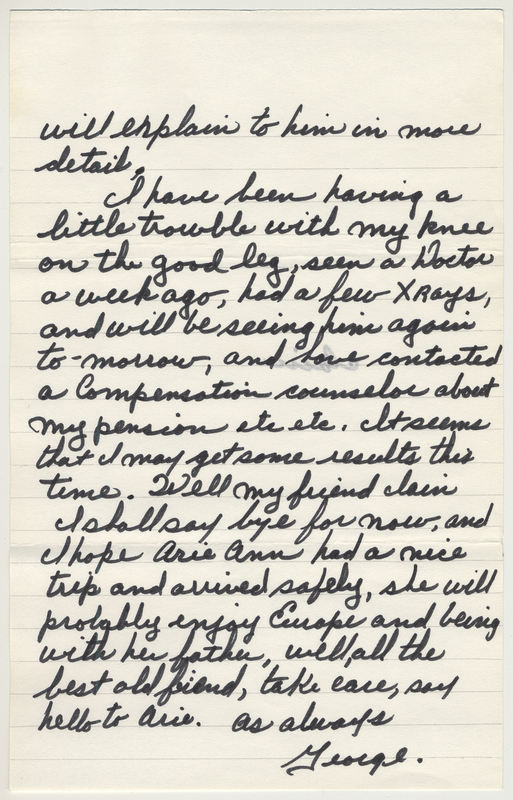 will explain to him in more
detail.
I have been having a
little trowble with my knee
on the good leg, seen a Doctor
a week ago, had a few XRays,
and will be seeing him again
to-morrow, and have contacted
a Compensation counselor about
my pension etc etc. It seems
that I may get some results this
time. Well my friend
I shall say bye for now, and
I hope Arie Ann had a nice
trip and arrived safely, she will
probybly enjoy Europe and being
with her father, well, all the
best old friend, take care, say
hello to Arie. as always
George.